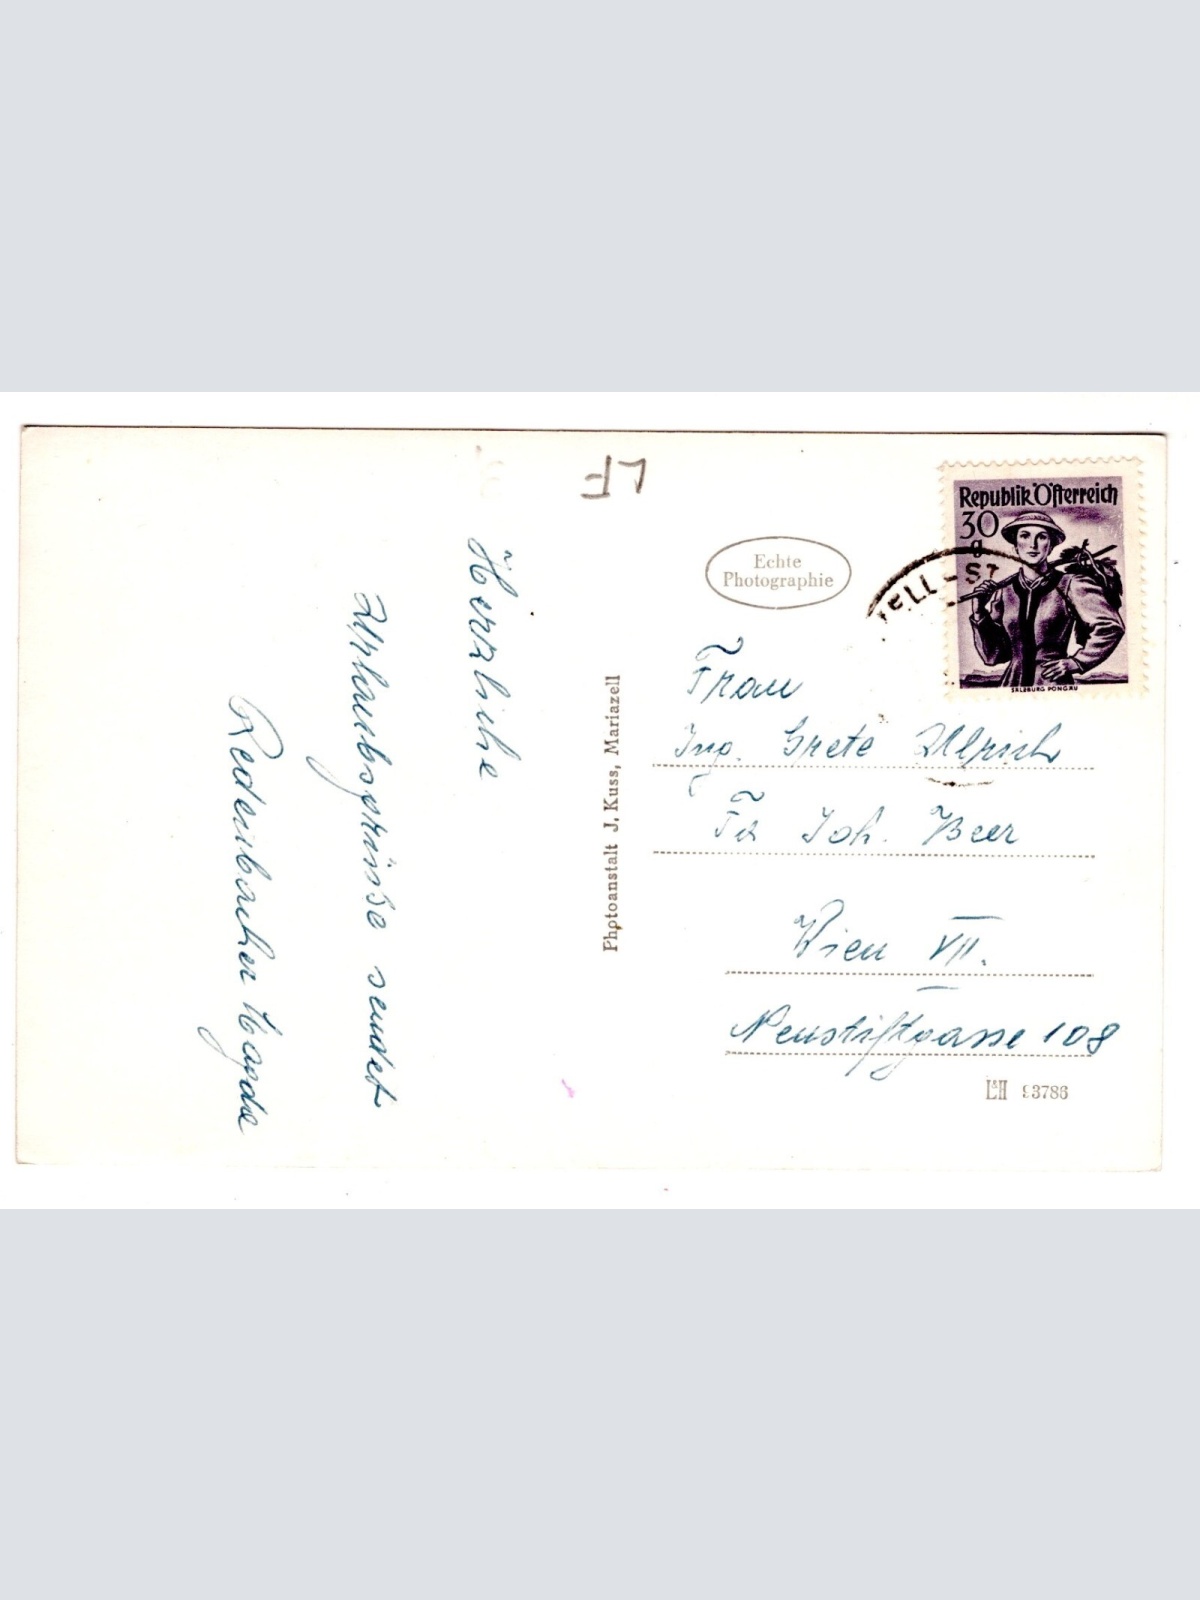 LF
Herzliche
Urlaubsgrüsse sendet
Redenbacher Magda
Photoanstalt J. Kuss, Mariazell
Echte
Photographie
Republik Österreich
30
g
SALZBURG PONGAU
ZELL-ST
Frau
Ing. Grete Ullrich
Fa Joh. Beer
Wien VII.
Neustiftgasse 108
L&H 93786